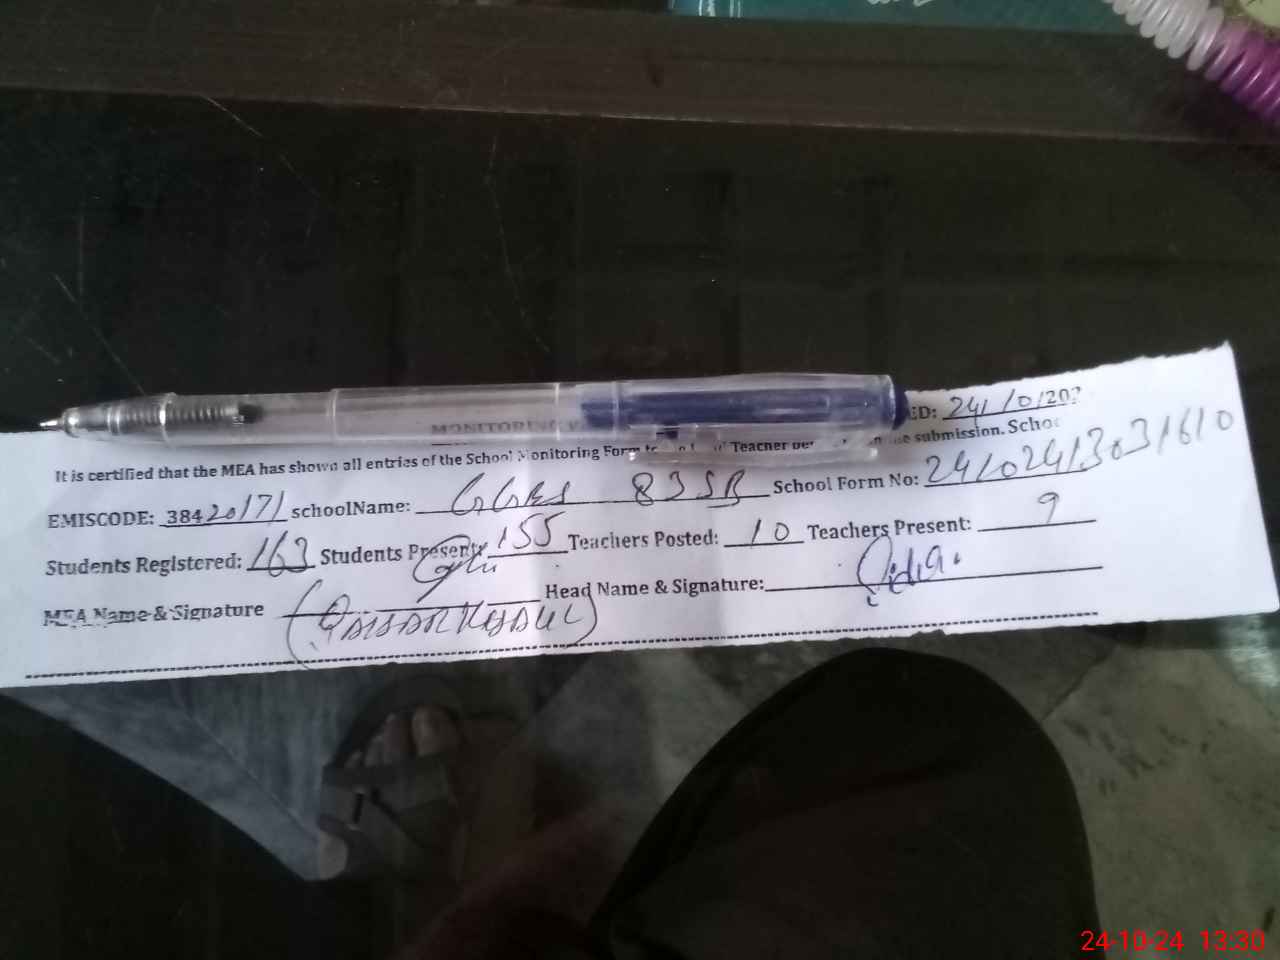 MONITORING
ED: 24/10/202
It is certified that the MEA has shown all entries of the School Monitoring Form to Teacher submission. Schoo
EMISCODE: 38420171 schoolName: GGES 83SB School Form No: 24102413031610
Students Registered: 163 Students Present: 155 Teachers Posted: 10 Teachers Present: 9
MEA Name & Signature Head Name & Signature:
24-10-24 13:30